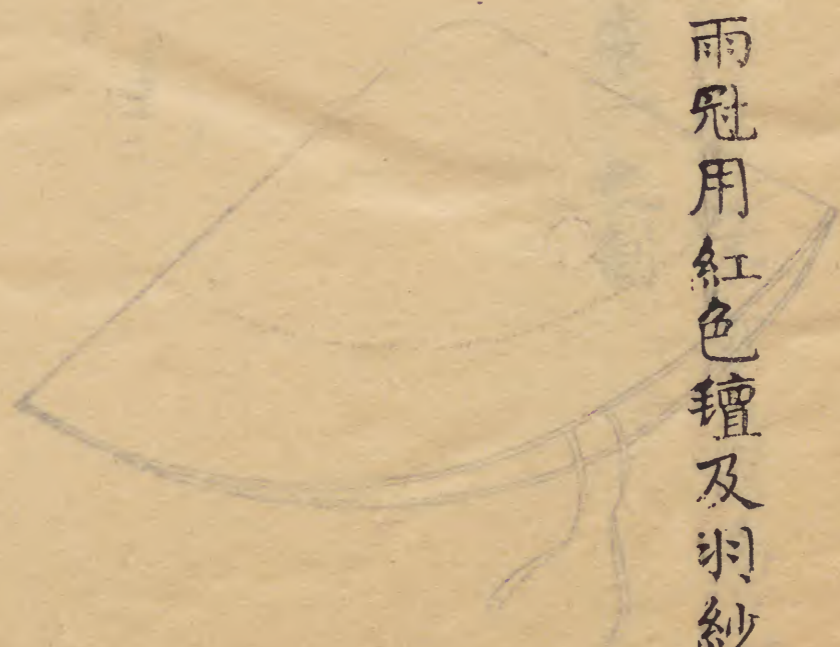 雨冠用紅色氊及羽紗